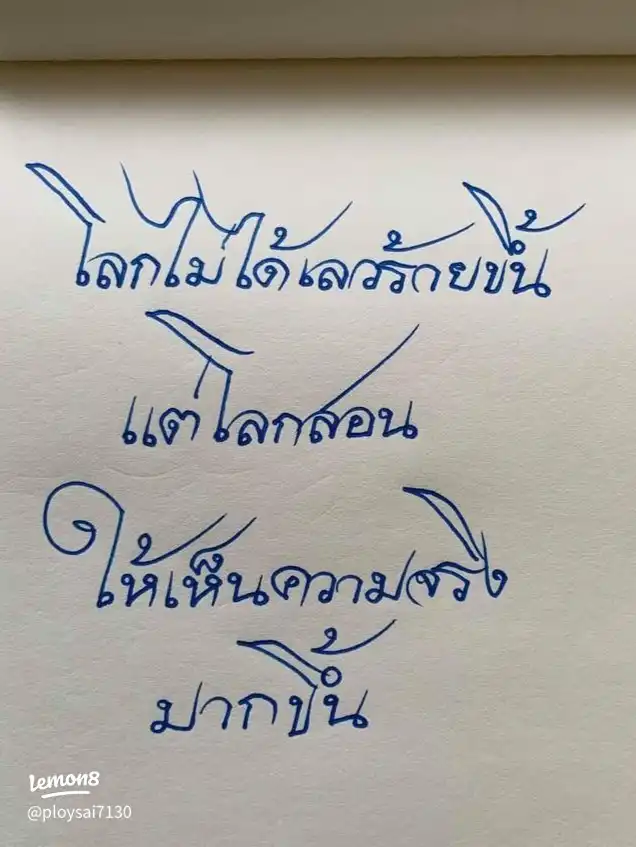 โลกไม่ได้เลวร้ายขึ้น
แต่โลกสอน
ให้เห็นความจริง
มากขึ้น
lemon8
@ploysai7130